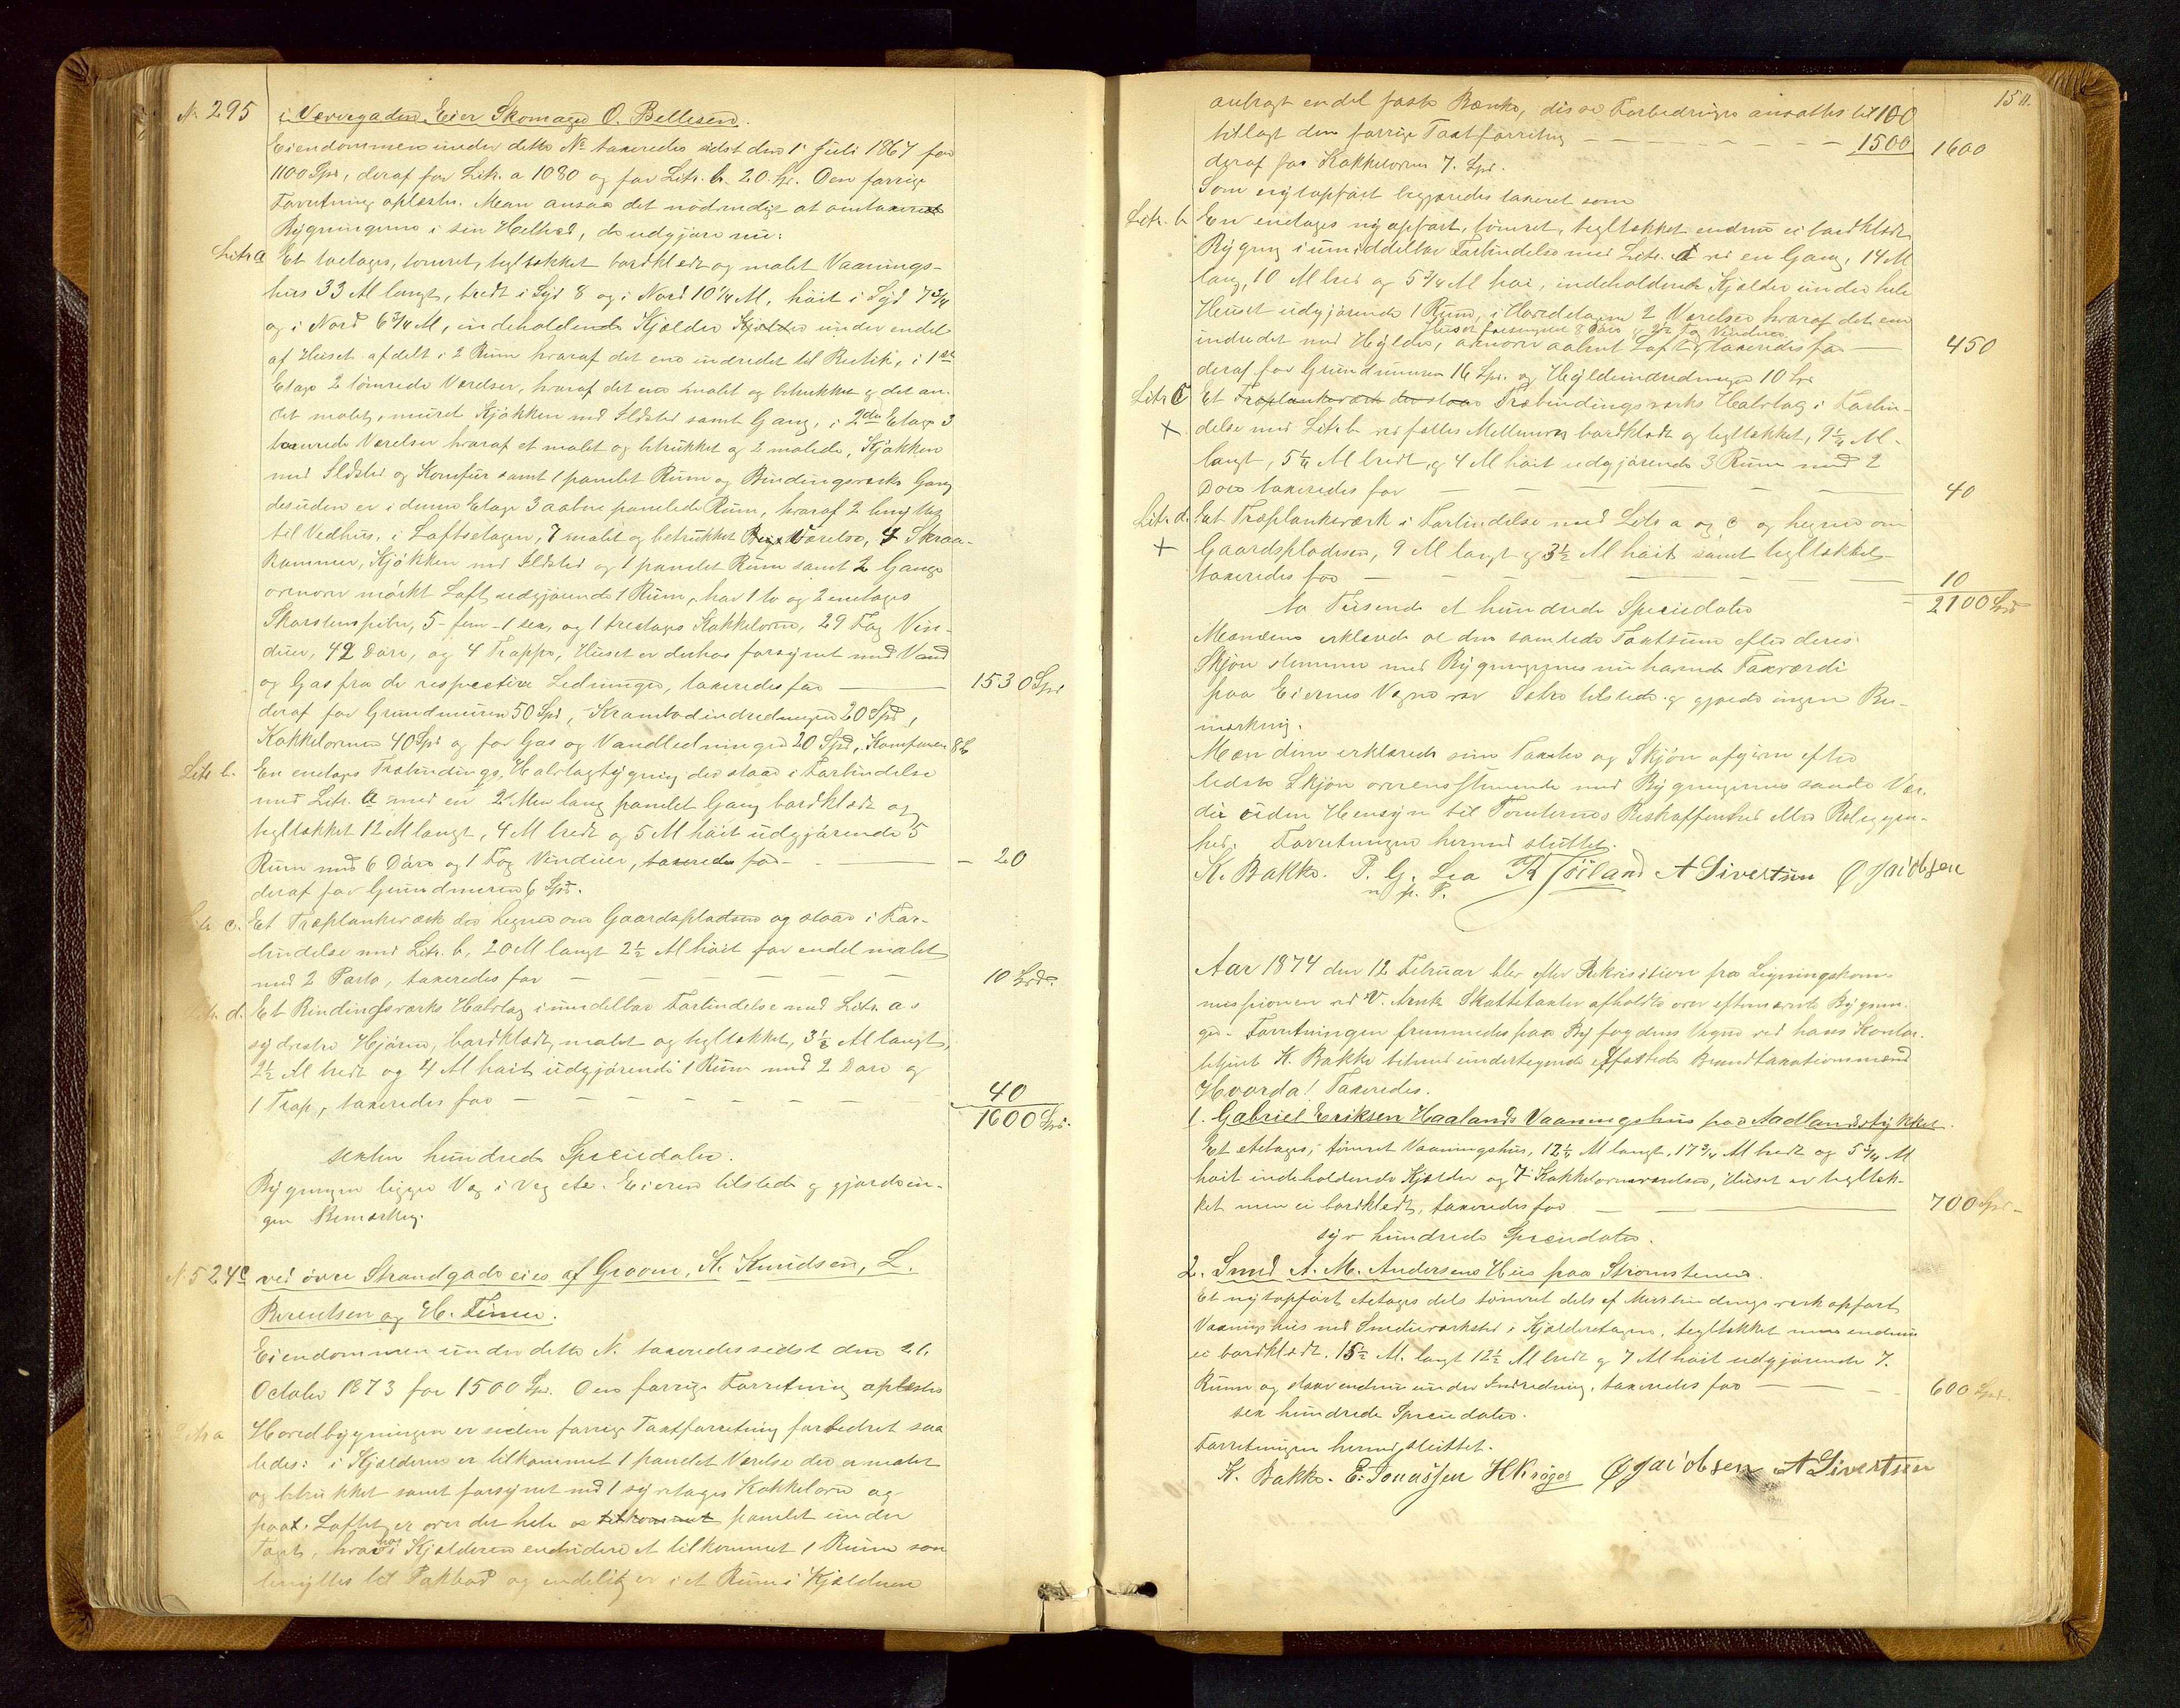 N. 295 i Værvegaden, Eier Skomager O. Bellesen.
Eiendommen under dette No taxeredes sidst den 1 Juli 1867 for
1100 Spd, deraf for Litr. a 1080 og for Litr. b. 20. Sp. Den forrige
Forretning oplæstes. Man ansaa det nødvendigt at omtaxerede
Bygningerne i sin Helhed, de udgjøre nu:
Litr a Et toetages, tømret, tegltækket bordklædt og malet Vaanings-
hus 33 Al langt, bredt i Syd 8 og i Nord 10 1/4 Al, høit i Syd 7 3/4
og i Nord 6 3/4 Al, indeholdende Kjælder Kjælder under endel
af Huset afdelt i 2 Rum hvoraf det ene indredet til Butik, i 1ste
Etage 2 tømrede Værelser, hvoraf det ene malet og betrukket og det an-
det malet, muret Kjøkken med Ildsted samt Gang, i 2den Etage 3
tømrede Værelser hvoraf et malet og betrukket og 2 malede, Kjøkken
med Ildsted og Komfur samt 1 panelet Rum og Bindingsværks Gang
desuden er i denne Etage 3 aabne panelede Rum, hvoraf 2 benyttes
til Vedhus, i Loftsetagen, 7 malet og betrukket Værelse, 4 Skraa-
kammer, Kjøkken med Ildsted og 1 panelet Rum samt 2 Gange
ovenover mørkt Loft udgjørende 1 Rum, har 1 to og 2 enetages
Skorstenspiber, 5-fem-1 sex, og 1 treetages Kakkelovne, 29 Fag Vin-
duer, 42 Døre, og 4 Trapper, Huset er derhos forsynet med Vand
og Gas fra de respective Ledninger, taxeredes for — 1530 Spd
deraf for Grundmuren 50 Spd, Krambodindredningen 20 Spd,
Kakkelovnene 40 Spd og for Gas og Vandledninger 20 Spd, Komfuren 8
Litr b. En enetages Træbindings, Halvtagbygning der staar i Forbindelse
med Litr. a med en 2 Alen lang panelet Gang bordklædt og
tegltækket 12 Al langt, 4 Al bredt og 5 Al høit udgjørende 5
Rum med 6 Døre og 1 Fag Vinduer, taxeredes for — 20
deraf for Grundmuren 6 Spd.
Litr c. Et Træplankeværk der hegner om Gaardspladsen og staar i For-
bindelse med Litr. b, 20 Al langt 2 1/2 Al høit for endel malet
med 2 Porte, taxeredes for — 10 Spd.
Litr. d. Et Bindingsværks Halvtag i umidelbar Forbindelse med Litr. a.s
sydvestre Hjørne, bordklædt, malet og tegltækket, 3 1/2 Al langt,
2 1/2 Al bredt og 4 Al høit udgjørende 1 Rum med 2 Døre og
1 Trap, taxeredes for — 40
1600 Spd.
sexten hundrede Speciedaler.
Bygningen ligger Væg i Væg etc. Eieren tilstede og gjorde in-
gen Bemærkning.
N. 524c ved øvre Strandgade eies af Groom, K. Knudsen, L.
Berentsen og H. Finne.
Eiendommen under dette N. taxeredes sidst den 21.
October 1873 for 1500 Spd. Den forrige Forretning oplæstes
Litr a Hovedbygningen er siden forrige Taxtforretning forbedret saa
ledes: i Kjælderen er tilkommet 1 panelet Værelse der er malet
og betrukket samt forsynet med 1 syvetages Kakkelovn og
paa Loftet er over det hele tilkommet panelet under
Taget, hvorhos i Kjælderen endvidere et tilkommet 1 Rum som
benyttes til Pakbod og endelig er i et Rum i Kjælderen
150.
anbragt endel faste Bænke, disse Forbedringer ansattes til 100
tillagt den forrige Taxtforretning — 1500 1600
deraf for Kakkelovnen 7. Spd.
Som nyt opført begjæredes taxeret som
Litr. b En enetages nyopført, tømret, tegltækket endnu ei bordklædt
Bygning i umiddelbar Forbindelse med Litr. a ved en Gang, 14 Al
lang, 10 Al bred og 5 3/4 Al høi, indeholdende Kjælder under hele
Huset udgjørende 1 Rum, i Hovedetagen 2 Værelser hvoraf det ene
Huset forsynet 8 Døre og 2 1/2 Fag Vinduer
indredet med Hylder, ovenover aabent Loft, taxeredes for — 450
deraf for Grundmuren 16 Spd. og Hyldeindredningen 10 Spd
Litr. c Et Træplankeværk der staar Træbindingsværks Halvtag i Forbin-
delse med Litr. b ved fælles Mellemvæg bordklædt og tegltækket, 9 1/4 Al-
langt, 5 1/4 Al bredt, og 4 Al høit udgjørende 3 Rum med 2
Døre taxeredes for — 40
Litr. d. Et Træplankeværk i Forbindelse med Litr a og c og hegner om
Gaardspladsen, 9 Al langt og 3 1/2 Al høit samt tegltækket
taxeredes for — 10
to Tusende et hundrede Speciedaler 2100 Spd
Mændene erklærede at den samlede Taxtsum efter deres
Skjøn stemmer med Bygningernes nuhavende Taxværdi
paa Eiernes Vegne var tilstede og gjorde ingen Be-
mærkning.
Mændene erklærede sine Taxter og Skjøn afgivne efter
bedste Skjøn overensstemmende med Bygningernes sande Vær-
die uden Hensyn til Tomternes Beskaffenhed eller Beliggen-
hed. Forretningen hermed sluttet.
K. Bakke. P. G. Lea K Tjöiland A Sivertsen O Jacobsen
m. p. P.
Aar 1874 den 12 Februar blev efter Rekvisition fra Ligningskom-
missionen ved V. Arntz Skattetaxter afholdte over efternævnte Bygnin-
ger. Forretningen fremmedes paa Byfogdens Vegne ved hans Kontor-
betjent K. Bakke tilmed undertegnede ansatte Brandtaxationsmænd
Hvorda! Taxeredes.
1. Gabriel Eriksen Haalands Vaaningshus paa Aadlandsstykket.
Et etetages, tømret Vaaningshus, 12 1/4 Al langt, 17 3/4 Al bredt og 5 3/4 Al
høit indeholdende Kjælder og 7 Kakkelovnsværelser, Huset er tegltæk-
ket men ei bordklædt, taxeredes for — 700 Spd
syv hundrede Speciedaler.
2. Smed A. M. Andersens Hus paa Strømstenen.
Et nyt opført etetages dels tømret dels af Murbindingsværk opført
Vaaningshus med Smedeværksted i Kjælderetagen, tegltækket men endnu
ei bordklædt. 15 1/2 Al. langt 12 1/2 Al bredt og 7 Al høit udgjørende 7.
Rum og staar endnu under Indredning, taxeredes for — 600 Spd.
sex hundrede Speciedaler.
Forretningen hermed sluttet.
K. Bakke. E. Jonassen H Krøger O Jacobsen A Sivertsen